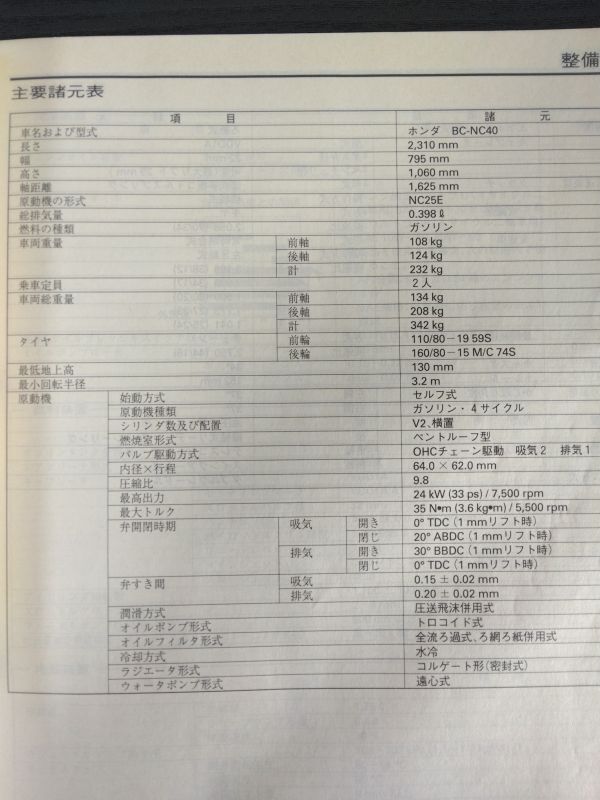 整備
主要諸元表
項 目 諸 元
車名および型式 ホンダ BC-NC40
長さ 2,310 mm
幅 795 mm
高さ 1,060 mm
軸距離 1,625 mm
原動機の形式 NC25E
総排気量 0.398 ℓ
燃料の種類 ガソリン
車両重量 前軸 108 kg
後軸 124 kg
計 232 kg
乗車定員 2 人
車両総重量 前軸 134 kg
後軸 208 kg
計 342 kg
タイヤ 前輪 110/80－19 59S
後輪 160/80－15 M/C 74S
最低地上高 130 mm
最小回転半径 3.2 m
原動機 始動方式 セルフ式
原動機種類 ガソリン・4サイクル
シリンダ数及び配置 V2、横置
燃焼室形式 ペントルーフ型
バルブ駆動方式 OHCチェーン駆動 吸気2 排気1
内径×行程 64.0 × 62.0 mm
圧縮比 9.8
最高出力 24 kW (33 ps) / 7,500 rpm
最大トルク 35 N•m (3.6 kg•m) / 5,500 rpm
弁開閉時期 吸気 開き 0° TDC（1 mmリフト時）
閉じ 20° ABDC（1 mmリフト時）
排気 開き 30° BBDC（1 mmリフト時）
閉じ 0° TDC（1 mmリフト時）
弁すき間 吸気 0.15 ± 0.02 mm
排気 0.20 ± 0.02 mm
潤滑方式 圧送飛沫併用式
オイルポンプ形式 トロコイド式
オイルフィルタ形式 全流ろ過式、ろ網ろ紙併用式
冷却方式 水冷
ラジエータ形式 コルゲート形（密封式）
ウォータポンプ形式 遠心式